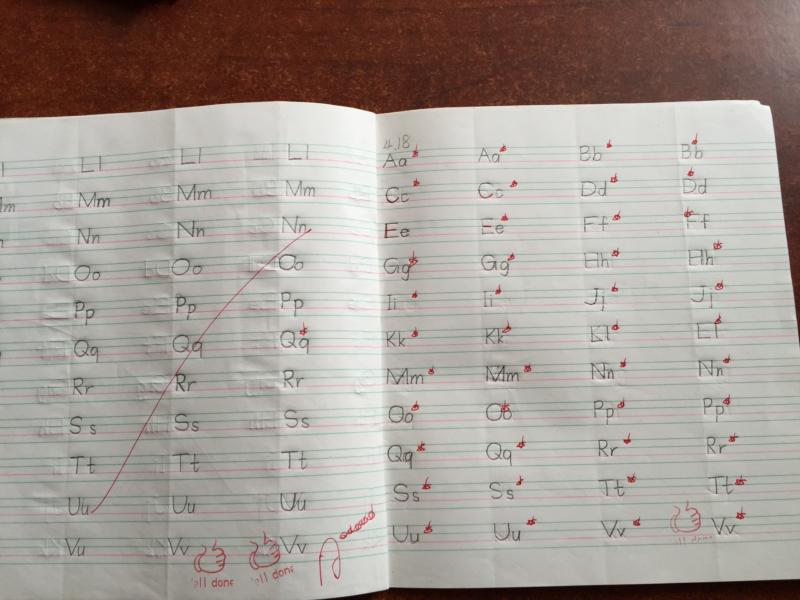 Ll Ll Ll
Mm Mm Mm
Nn Nn Nn
Oo Oo Oo
Pp Pp Pp
Qq Qq Qq
Rr Rr Rr
Ss Ss Ss
Tt Tt Tt
Uu Uu Uu
Vu Vv Vv
'ell done 'ell done
4.18
Aa Aa Bb Bb
Cc Cc Dd Dd
Ee Ee Ff Ff
Gg Gg Hh Hh
Ii Ii Jj Jj
Kk Kk Ll
Mm Mm Nn Nn
Oo Oo Pp Pp
Qq Qq Rr Rr
Ss Ss Tt Tt
Uu Uu Vv Vv
ell done